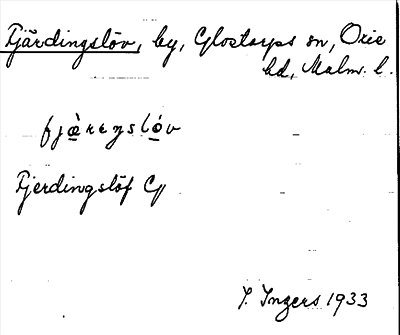 Fjärdingslöv, by, Glostorps sn, Oxie
hd, Malm. l.
fjæ̀rɩŋslóv
Fjerdingslöf Gg
I. Ingers 1933